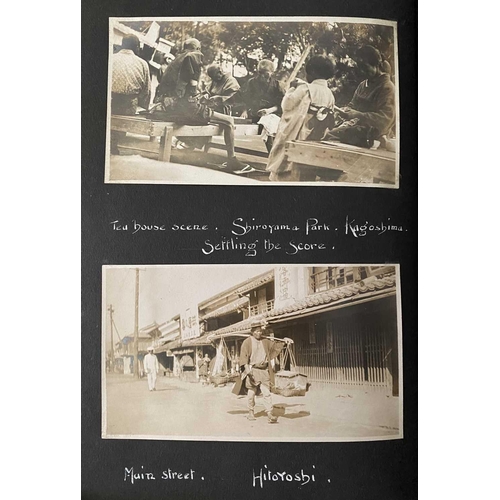 Tea house scene. Shiroyama Park. Kagoshima.
Settling the Score.
Main street. Hitoyoshi.